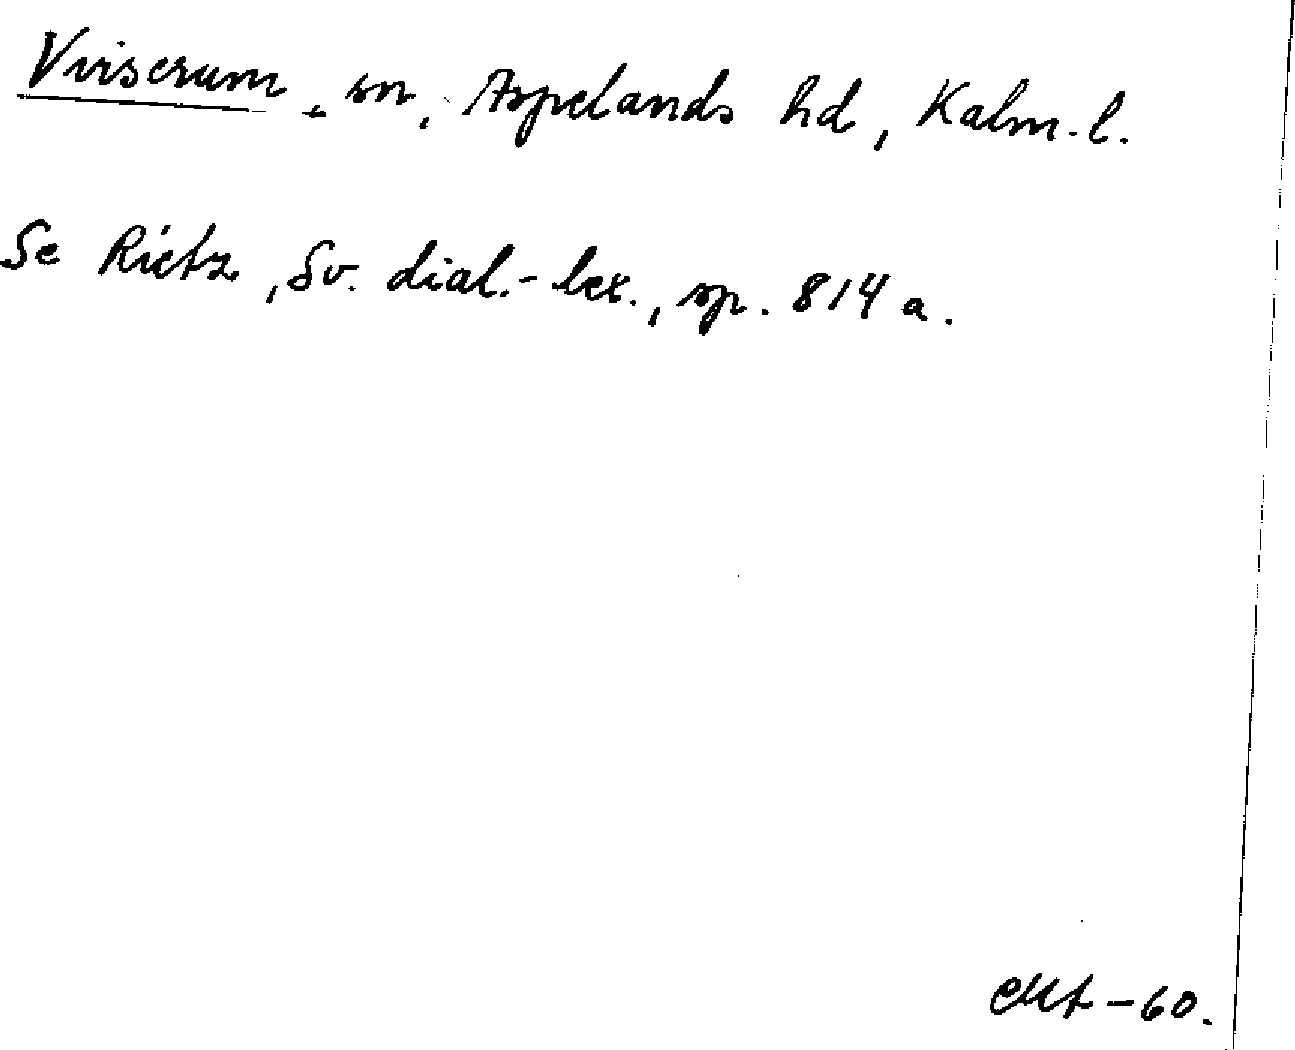 Virserum, sn, Aspelands hd, Kalm. l.
Se Rietz, Sv. dial.-lex., sp. 814 a.
-60.